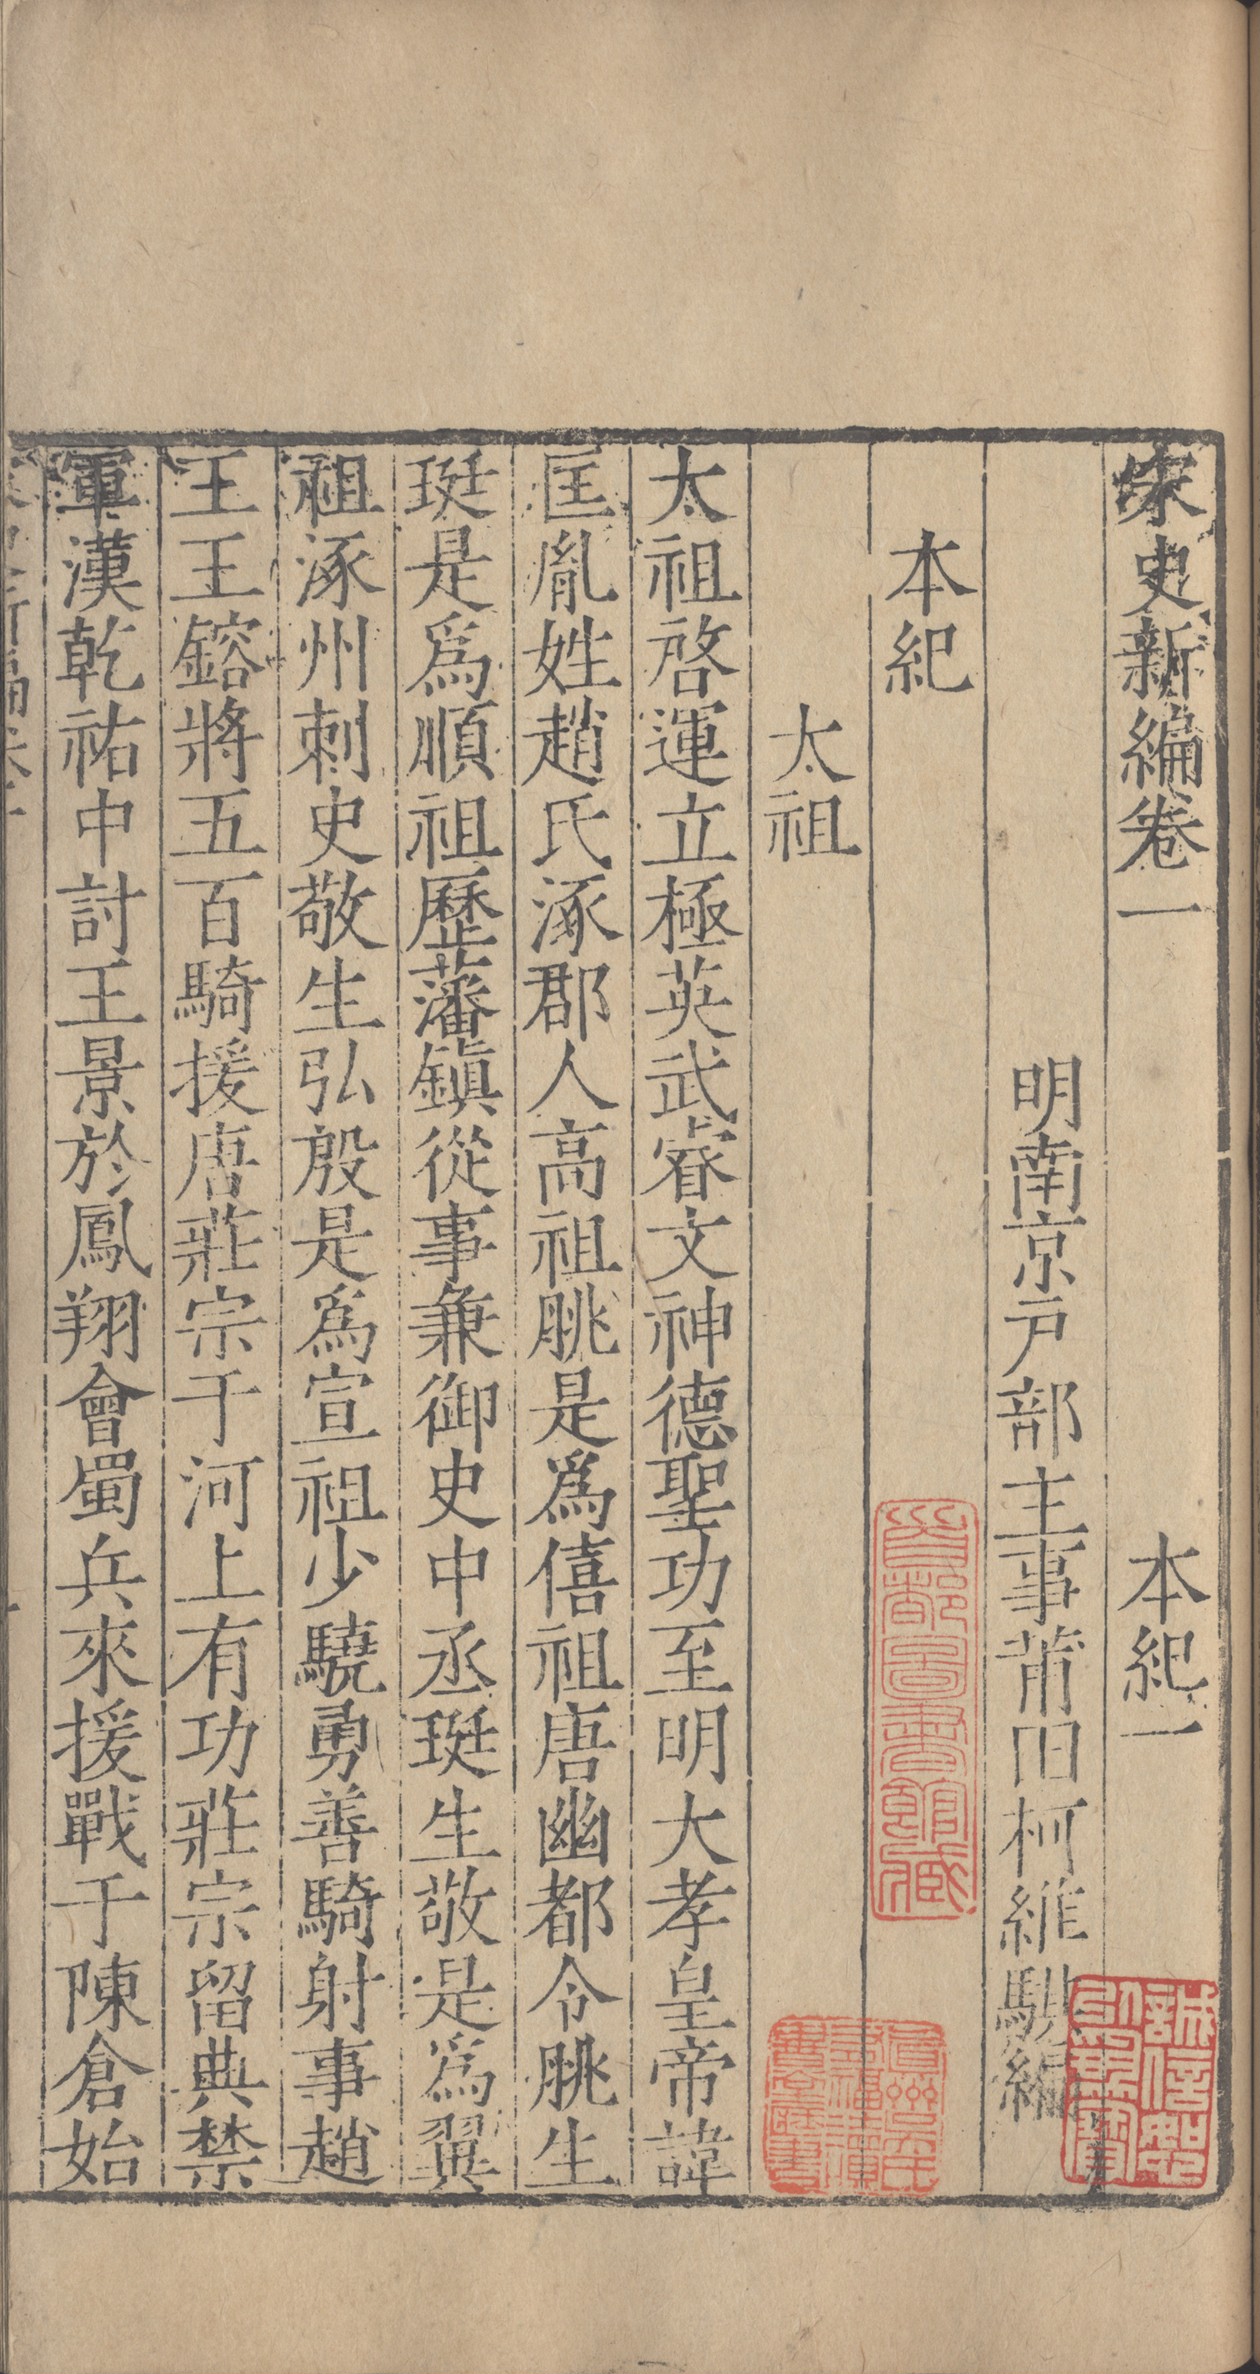 宋史新編卷一　本紀一
明南京戶部主事莆田柯維騏編
本紀
太祖
太祖啓運立極英武睿文神德聖功至明大孝皇帝諱
匡胤姓趙氏涿郡人高祖朓是爲僖祖唐幽都令朓生
珽是爲順祖歷藩鎮從事兼御史中丞珽生敬是爲翼
祖涿州刺史敬生弘殷是爲宣祖少驍勇善騎射事趙
王王鎔將五百騎援唐莊宗于河上有功莊宗留典禁
軍漢乾祐中討王景於鳳翔會蜀兵來援戰于陳倉始
首都圖書館藏